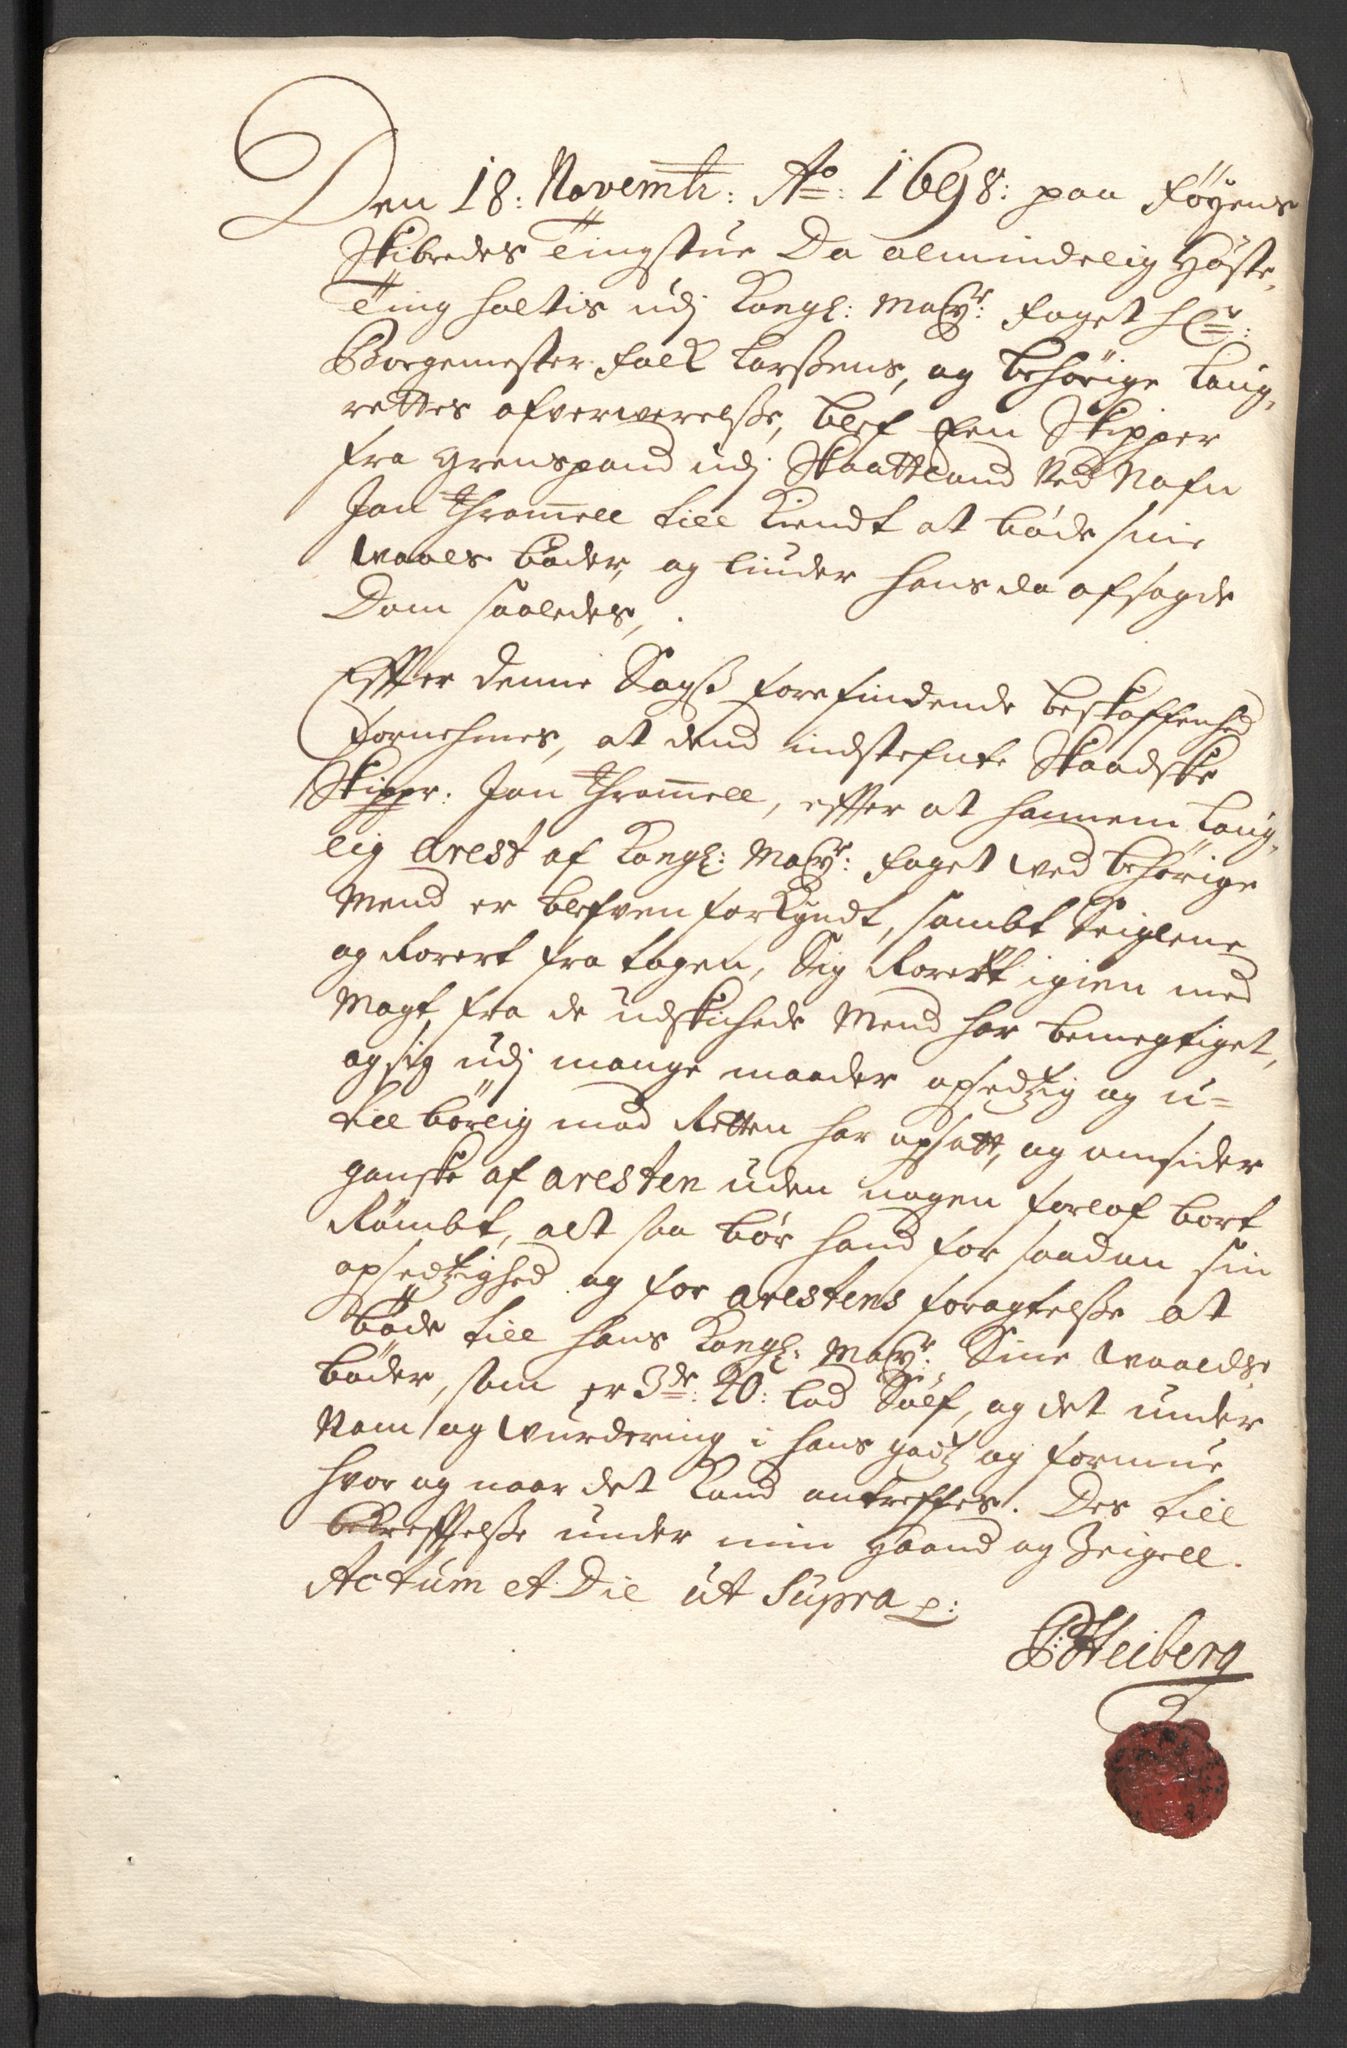 Den 18: Novembr: Ao: 1698: paa Føyens
Skibredes Tingstue Da almindelig Høste
Ting holtis udj Kongl: Mayr: Foget Hr:
Borgemester Falk Larssens, og behørige Laug,
rettes ofververelsse, blef Een Skipper
fra Grenspand udj Skaatland Ved Nafn
Jan Thromell till Kiendt at bøde sine
Waals bøder, og liuder hans da afsagde
Dom saaledes,
Effter denne Sags forefindende beskaffenhed
fornehmes, at dend indstefnte Skaadske
Skippr. Jan Thromell, effter at hannem laug,
lig Arest af Kongl: Mayr: Foget ved behørige
Mend er blefven forkyndt, sambt Seiglene
og Roret fra tagen, Sig Roret igien med
Magt fra de udskichede Mend har bemegtiget,
og sig udj mange maader opsedtzig og u-
tilbørlig mod Retten har opsatt, og omsider
ganske af aresten uden nogen forlof bort
Rømbt, alt saa bør hand for saadan sin
opsedtzighed og for arestens foragtelsse at
bøde till hans Kongl: Mayr: Sine Waalds
bøder, som er 3de: 20: lod Sølf, og det under
Nam og Vurdering i hans godz og formue
hvor og naar det Kand antreffes. Des till
bekrefftelsse under min Haand og Zeigell.
Actum et Die ut Supra
P: Heiberg